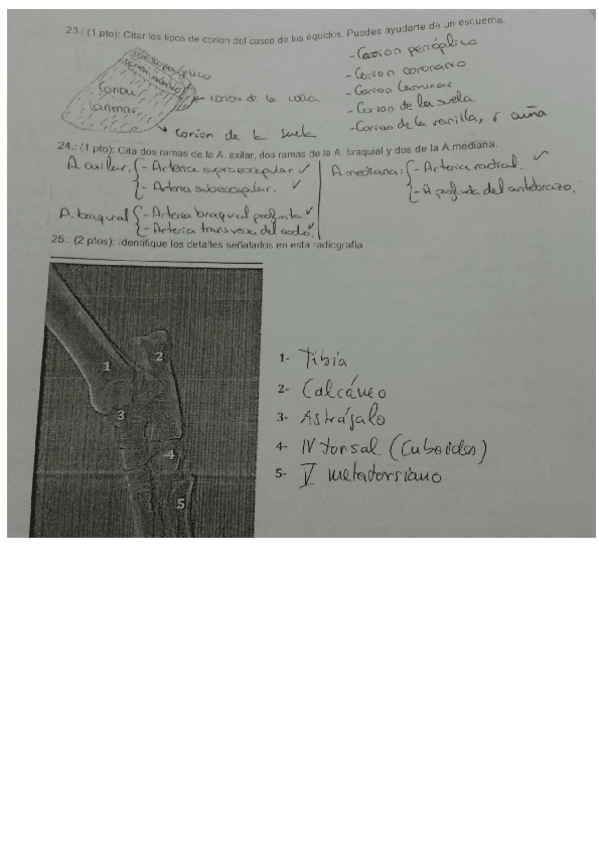 23.: (1 pto): Citar los tipos de corion del casco de los équidos. Puedes ayudarte de un esquema.
- Corion perióplico
- Corion coronario
- Corion laminar
- Corion de la suela
- Corion de la ranilla, ó cuña
Corion perióplico
Corion
laminar
corion de la cuña
corion de la suela
24.: (1 pto): Cita dos ramas de la A. axilar, dos ramas de la A. braquial y dos de la A.mediana.
A axilar. - Arteria supraescapular ✓
- Arteria subescapular. ✓
A mediana: - Arteria radial. ✓
- A profunda del antebrazo.
A. braquial - Arteria braquial profunda ✓
- Arteria transversa del codo. ✓
25.: (2 ptos): Identifique los detalles señalados en esta radiografía
1
2
3
4
5
1- Tibia
2- Calcáneo
3- Astrágalo
4- IV tarsal (Cuboides)
5- V metatarsiano